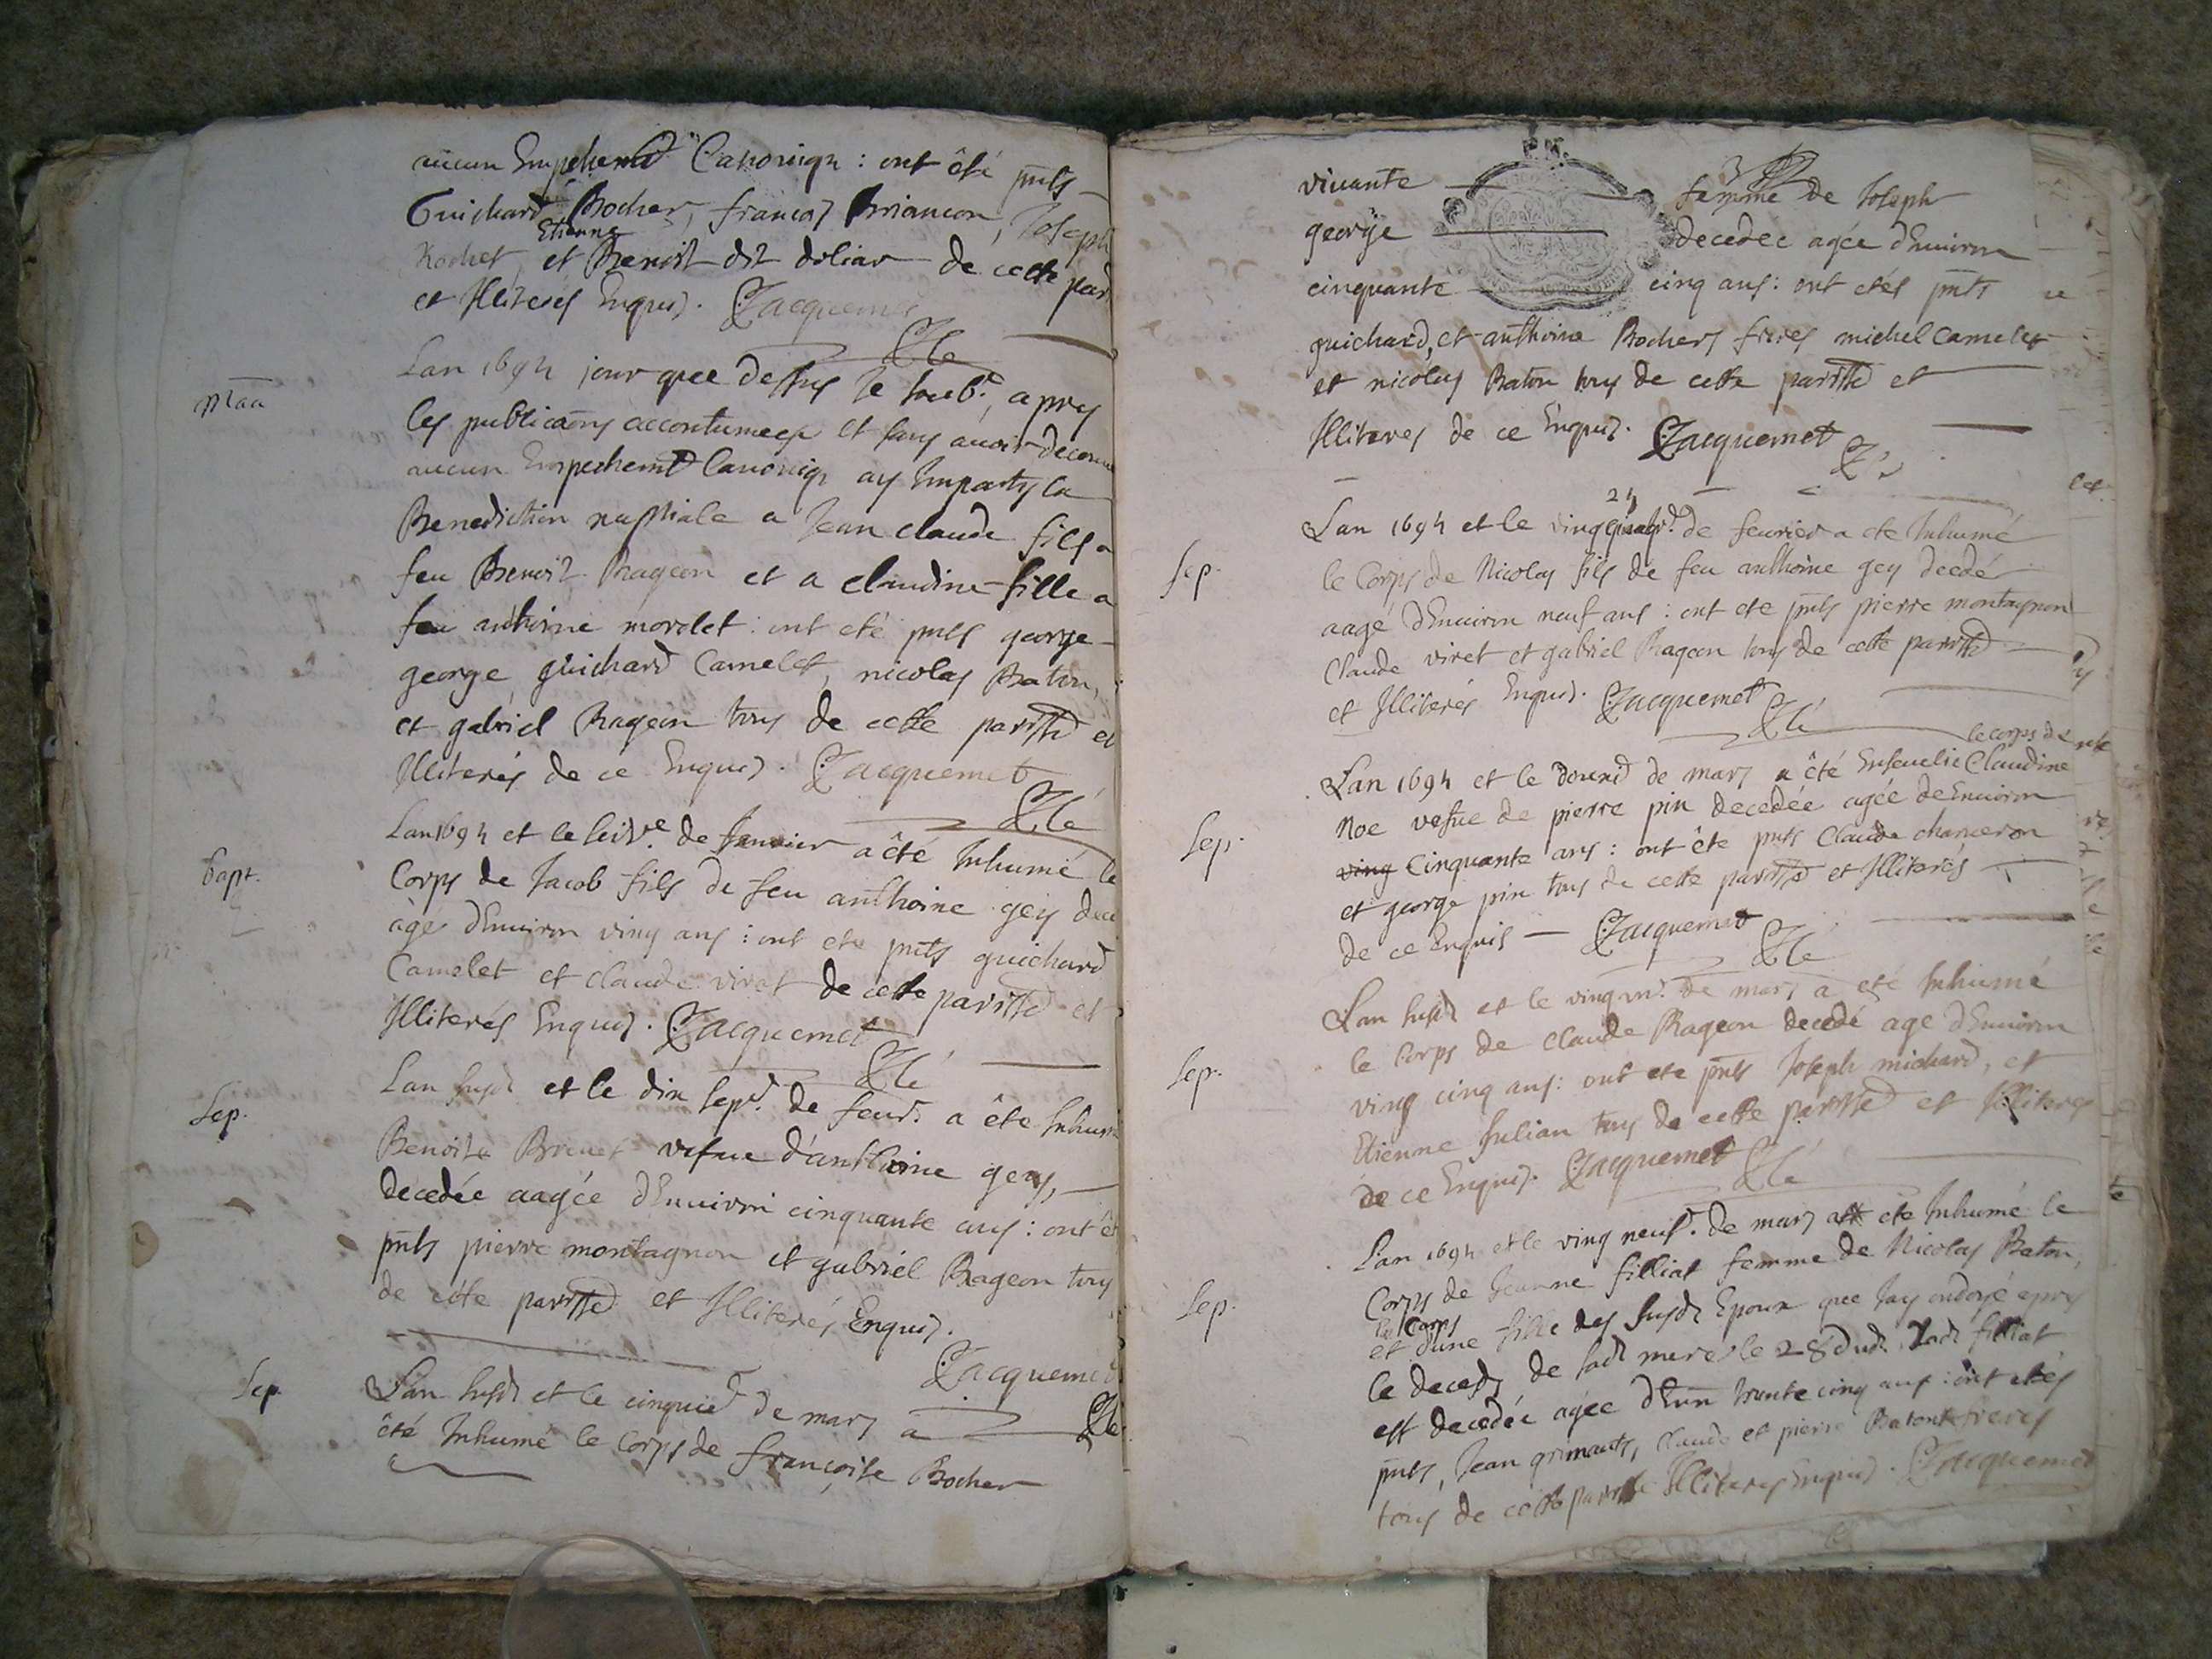 aucun Empehemt Canoniqz : ont êté pnts
Guichard Rocher, françois Briancon, Joseph
Etienne
Rochet, et Benoist dit doliar de cette par
et Illiterés Enquis. Jacquemet
Clé
Maa
Lan 1694 jour que dessus Je soubd. apres
les publicaons accoutumeez et sans auoir decou
aucun Empeshemt Canoniqz ay Imparty la
Benediction nuptiale a Jean claude fils a
feu Benoist Rageon et a claudine fille a
feu anthoine morelet : ont eté pnts george
george, guichard Camelet, nicolas Baton,
et gabriel Rageon tous de cette parisse et
Illiterés de ce Enquis. Jacquemet
Clé
bapt.
Lan 1694 et le seise. de Januier a êté Inhumé le
Corps de Jacob fils de feu anthoine gey dece
àgé dEnuiron ving ans : ont ete pnts guichard
Camelet et claude viret de cette parisse et
Illiterés Enquis. Jacquemet
Clé
Sep.
Lan susd et le dix sept. de feur. a ête Inhum
Benoiste Brunet vefue d'anthoine gey,
decedée aagée dEnuiron cinquante ans : ont ét
pnts pierre montagnon et gabriél Rageon tous
de cette parisse et Illiterés Enquis.
Jacquemet
Clé
Sep.
Lan susd et le cinquie de mars a
êté Inhumé le Corps de françoise Rocher
viuante femme de Joseph
george decedée agée dEnuiron
cinquante cinq ans : ont etés pnts
guichard, et anthoine Rochers freres michel Camelet
et nicolas Baton tous de cette parisse et
Illiteres de ce Enquis. Jacquemet
Clé
24
Sep.
Lan 1694 et le ving quatr. de feurier a ete Inhumé
le Corps de Nicolas fils de feu anthoine gey decedé
aagé dEnuiron neuf ans : ont ete pnts pierre montagnon
Claude viret et gabriel Rageon tous de cette parisse
et Illiterés Enquis. Jacquemet
Clé
le corps de
Sep.
Lan 1694 et le de mars a êté Enseuelie Claudine
Noe vefue de pierre pin decedée agée de Enuiron
ving Cinquante ans : ont ête pnts Claude charueron
et george pin tous de cette parisse et Illiterés
de ce Enquis — Jacquemet
Clé
Sep.
Lan susd et le ving un. de mars a eté Inhumé
le Corps de claude Rageon decedé age dEnuiron
ving cinq ans : ont ete pnts Joseph michard, et
Etienne Julian tous de cette parisse et Illiteres
de ce Enquis. Jacquemet
Clé
Sep.
Lan 1694 et le ving neuf. de mars a ete Inhumé le
Corps de Jeanne filliat femme de Nicolas Baton,
le Corps
et dune fille des susd Epoux que Jay ondoyé apres
le deceds de sad mere le 28 dud. Lad filliat
est decedée agée dEnn trante cinq ans : ont etés
pnts, Jean grimauts, claude et pierre Baton freres
tous de cette parisse Illiteres Enquis. Jacquemet